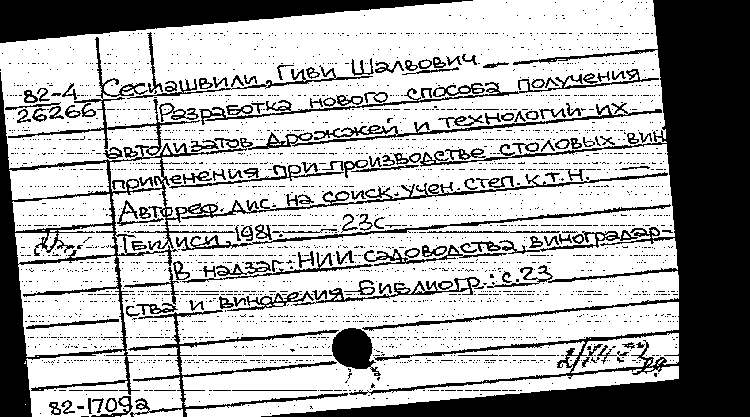 82-4 Сесиашвили, Гиви Шалвович
26266 Разработка нового способа получения
автолизатов дрожжей и технологии их
применения при производстве столовых вин
Автореф. дис. на соиск. учен. степ. к.т.н.
Тбилиси, 1981. 23с
В надзаг.: НИИ садоводства, виноградар-
ства и виноделия. Библиогр.: с.23
82-17092